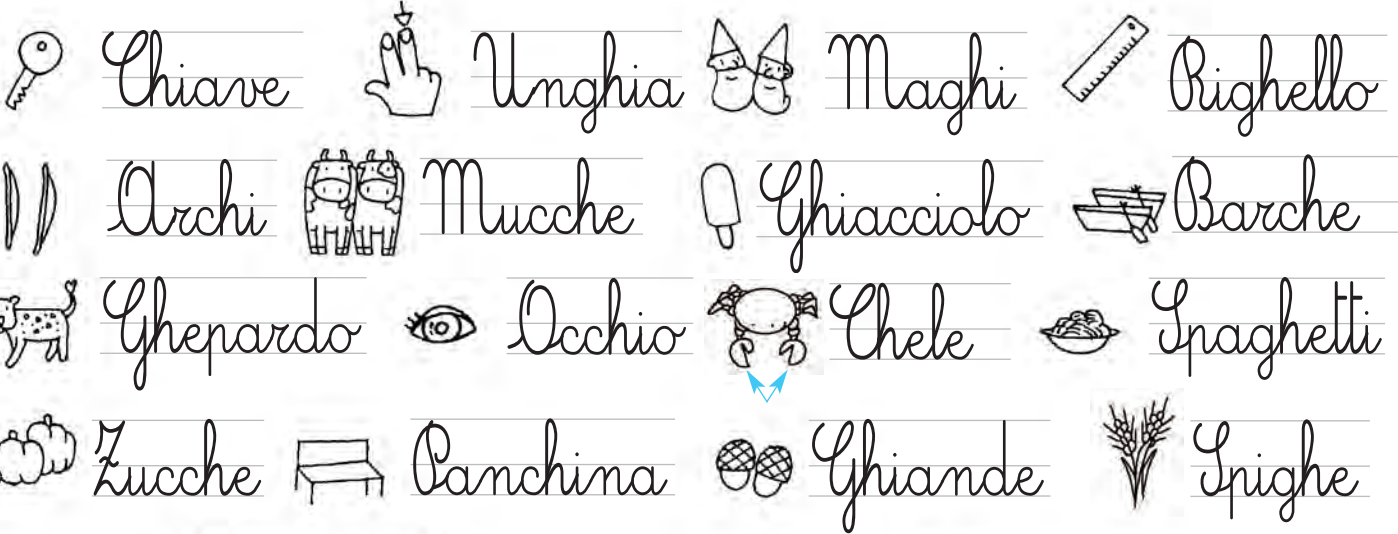 Chiave Unghia Maghi Righello
Archi Mucche Ghiacciolo Barche
Ghepardo Occhio Chele Spaghetti
Zucche Panchina Ghiande Spighe